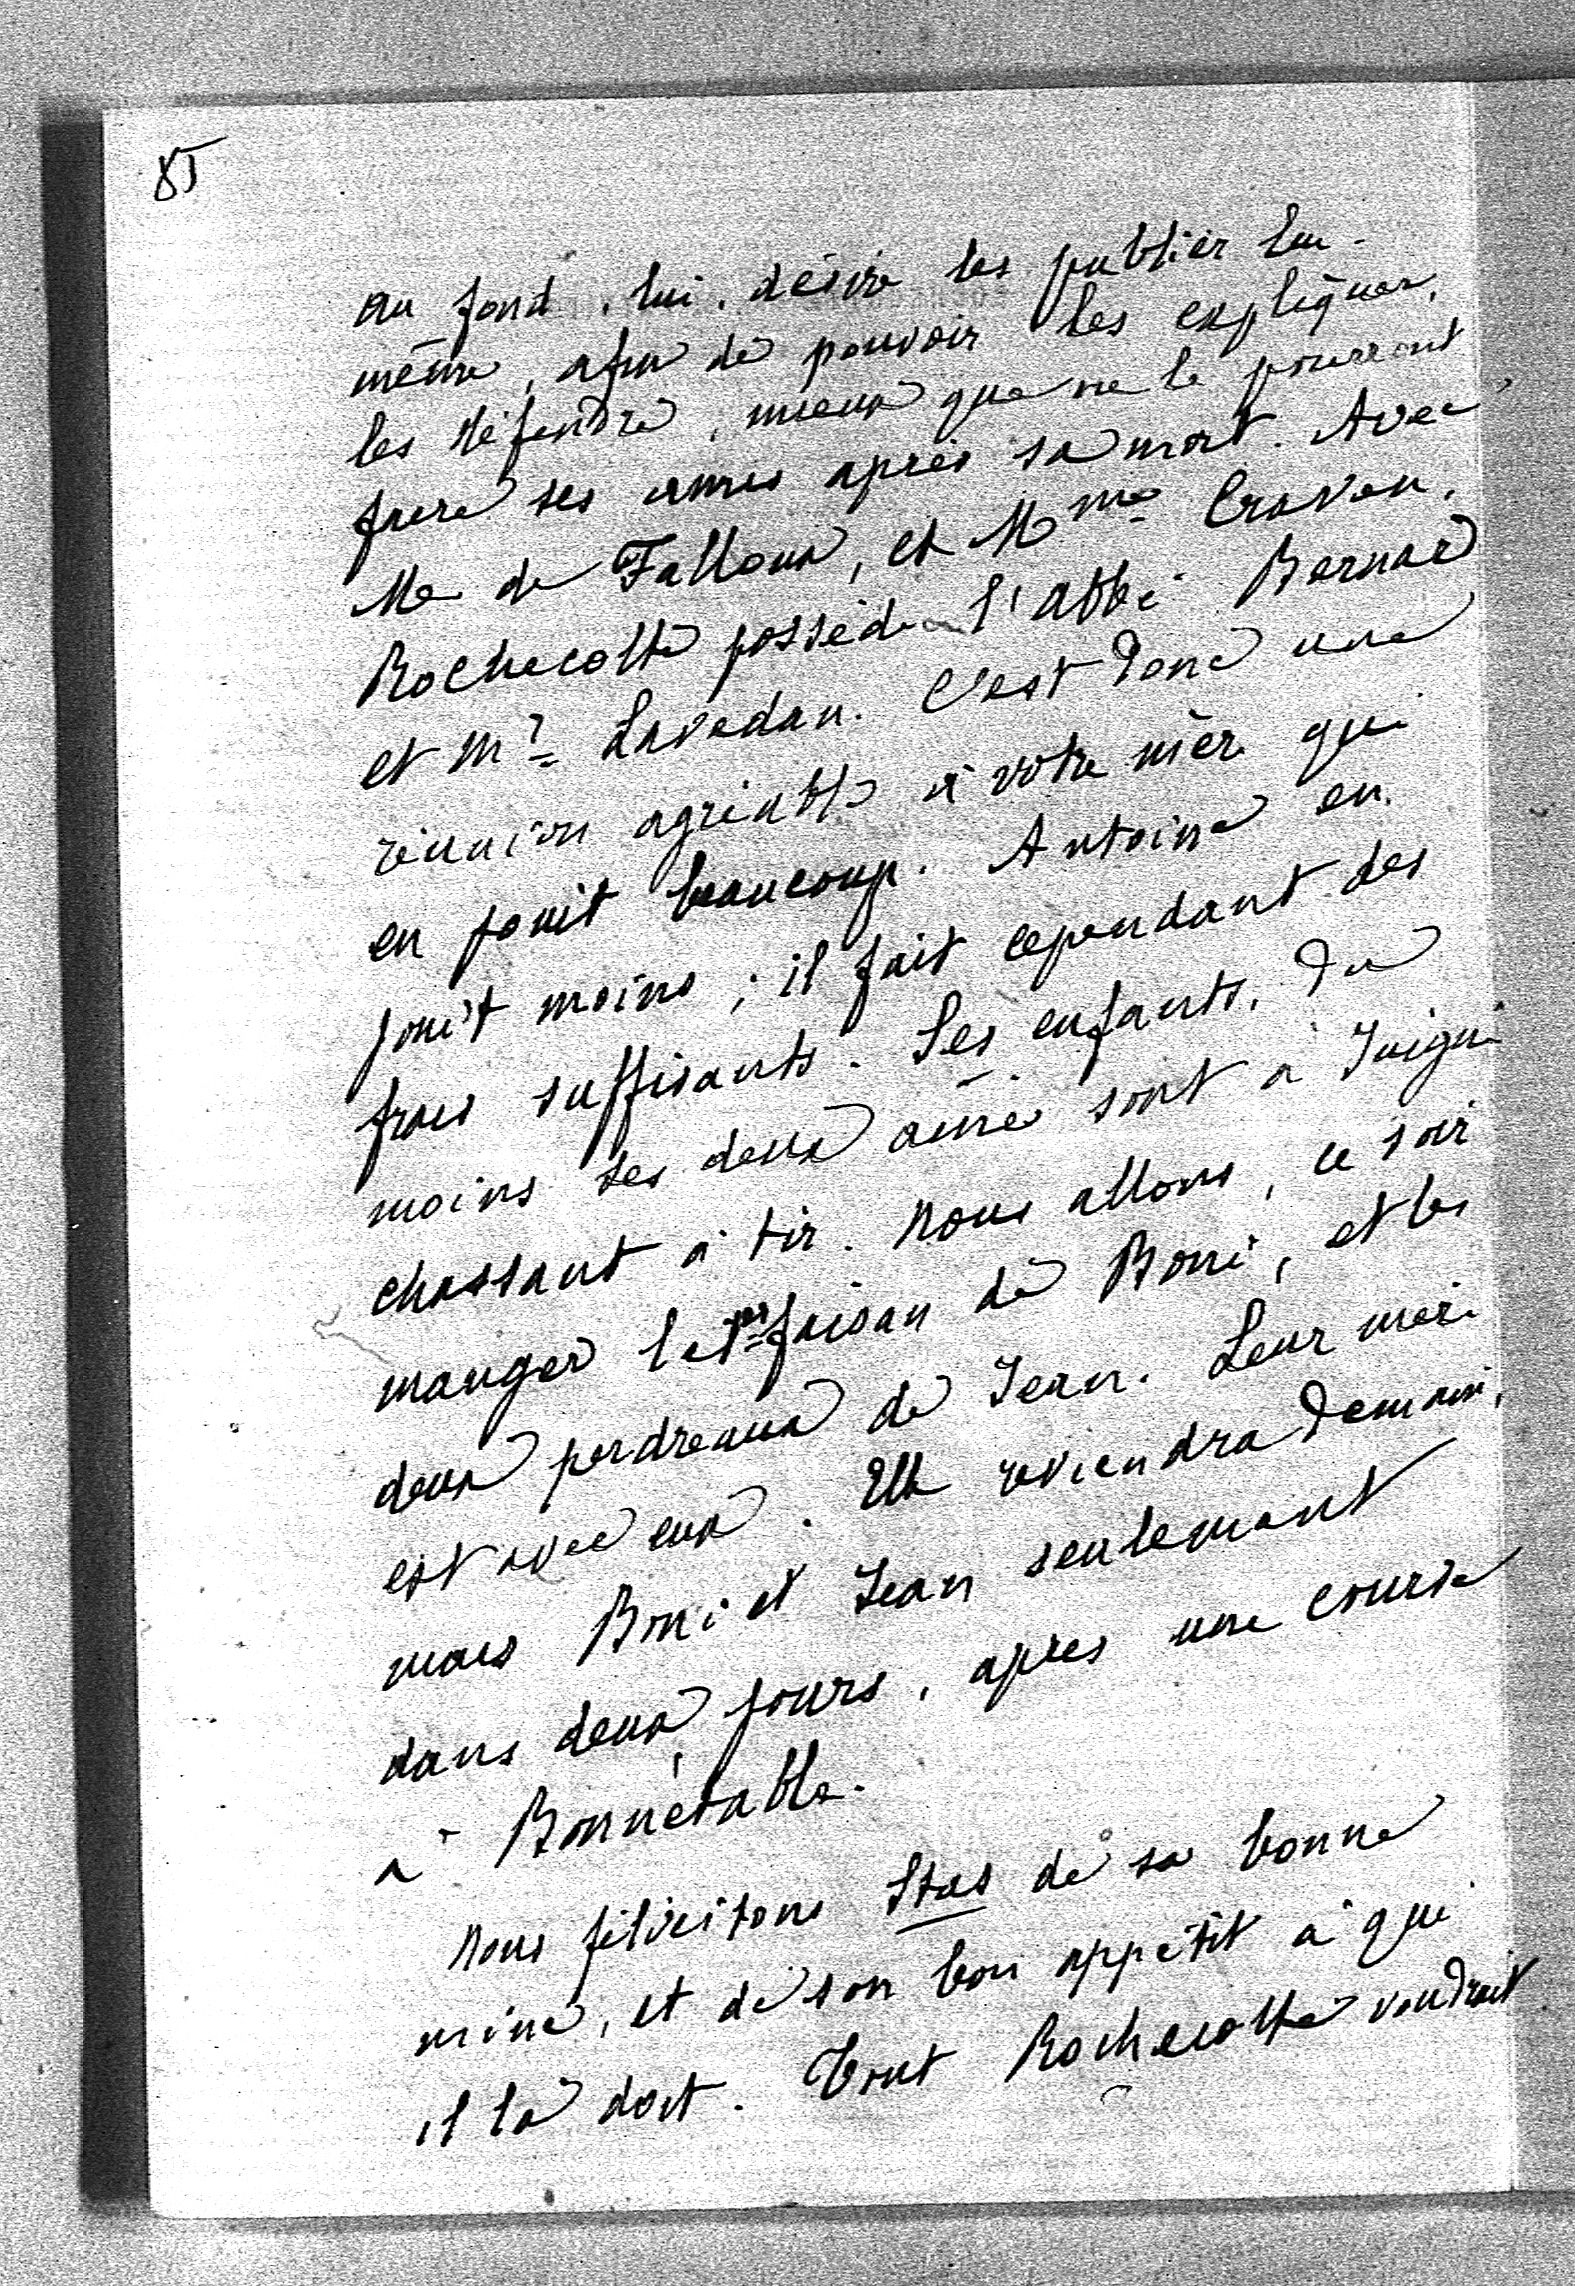 85
au fond, lui, désire les publier lui-
même, afin de pouvoir les expliquer,
les défendre, mieux que ne le pourront
faire ses amis après sa mort. Avec
Mr de Falloux, et Mme Craven,
Rochecotte possède l'abbé Bernard
et Mr Lavedan. C'est donc une
réunion agréable à votre mère qui
en jouit beaucoup. Antoine en
jouit moins ; il fait cependant des
frais suffisants. Ses enfants, du
moins ses deux ainés sont à Juigné
chassant à tir. Nous allons, ce soir
manger le 1er faisan de Boni, et les
deux perdreaux de Jean. Leur mère
est avec eux. Elle reviendra demain,
mais Boni et Jean seulement
dans deux jours, après une course
à Bonnétable.
Nous félicitons Stas de sa bonne
mine, et de son bon appétit à qui
il la doit. Tout Rochecotte voudrait